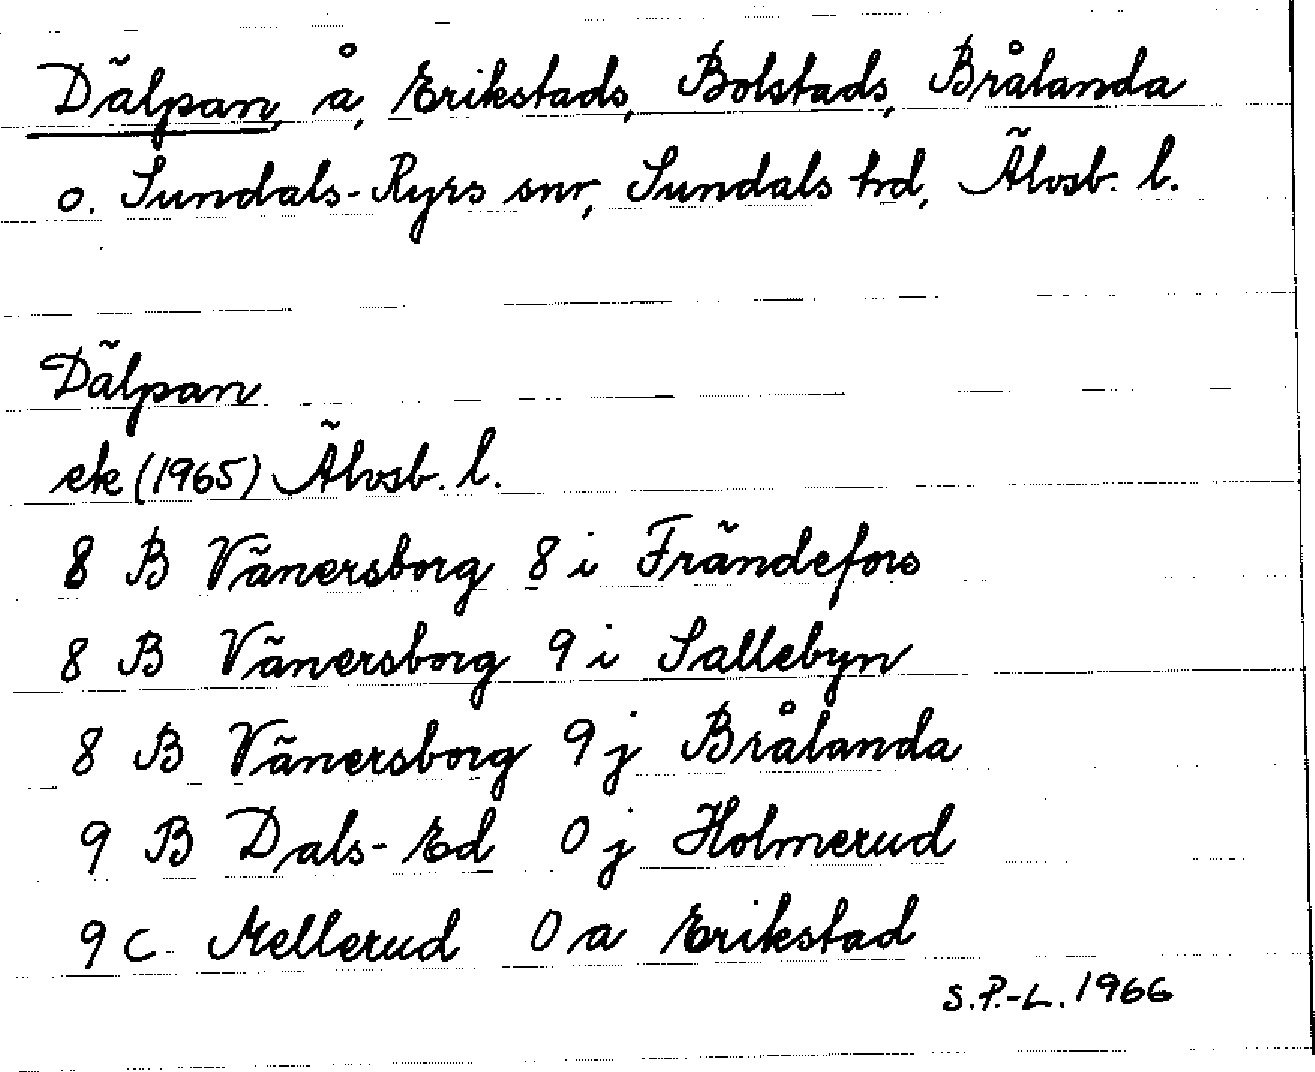 Dälpan, å, Erikstads, Bolstads, Brålanda
o. Sundals-Ryrs snr, Sundals hd, Älvsb. l.
Dälpan
ek (1965) Älvsb. l.
8 B Vänersborg 8 i Frändefors
8 B Vänersborg 9 i Sallebyn
8 B Vänersborg 9 j Brålanda
9 B Dals-Ed 0 j Holmerud
9 C Mellerud 0 a Erikstad
S.P.-L. 1966